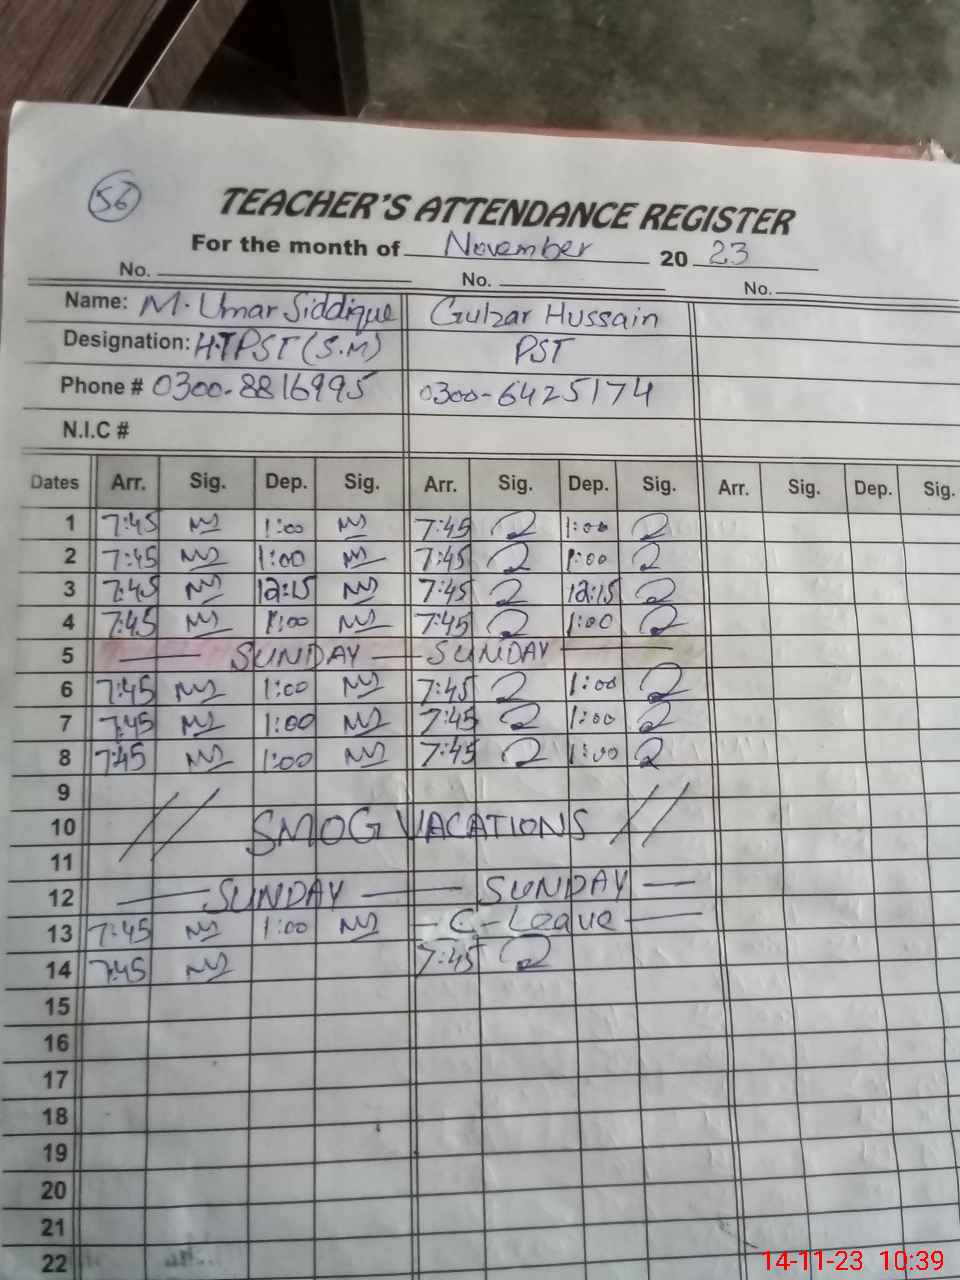 56
TEACHER'S ATTENDANCE REGISTER
For the month of November 20 23
No. No. No.
Name: M. Umar Siddique Gulzar Hussain
Designation: H.T PST (S.M) PST
Phone # 0300-8816995 0300-6425174
N.I.C #
Dates Arr. Sig. Dep. Sig. Arr. Sig. Dep. Sig. Arr. Sig. Dep. Sig.
1 7:45 1:00 7:45 1:00
2 7:45 1:00 7:45 1:00
3 7:45 12:15 7:45 12:15
4 7:45 1:00 7:45 1:00
5 SUNDAY SUNDAY
6 7:45 1:00 7:45 1:00
7 7:45 1:00 7:45 1:00
8 7:45 1:00 7:45 1:00
9
10 SMOG VACATIONS
11
12 SUNDAY SUNDAY
13 7:45 1:00 C-Leave
14 7:45 7:45
15
16
17
18
19
20
21
22
14-11-23 10:39